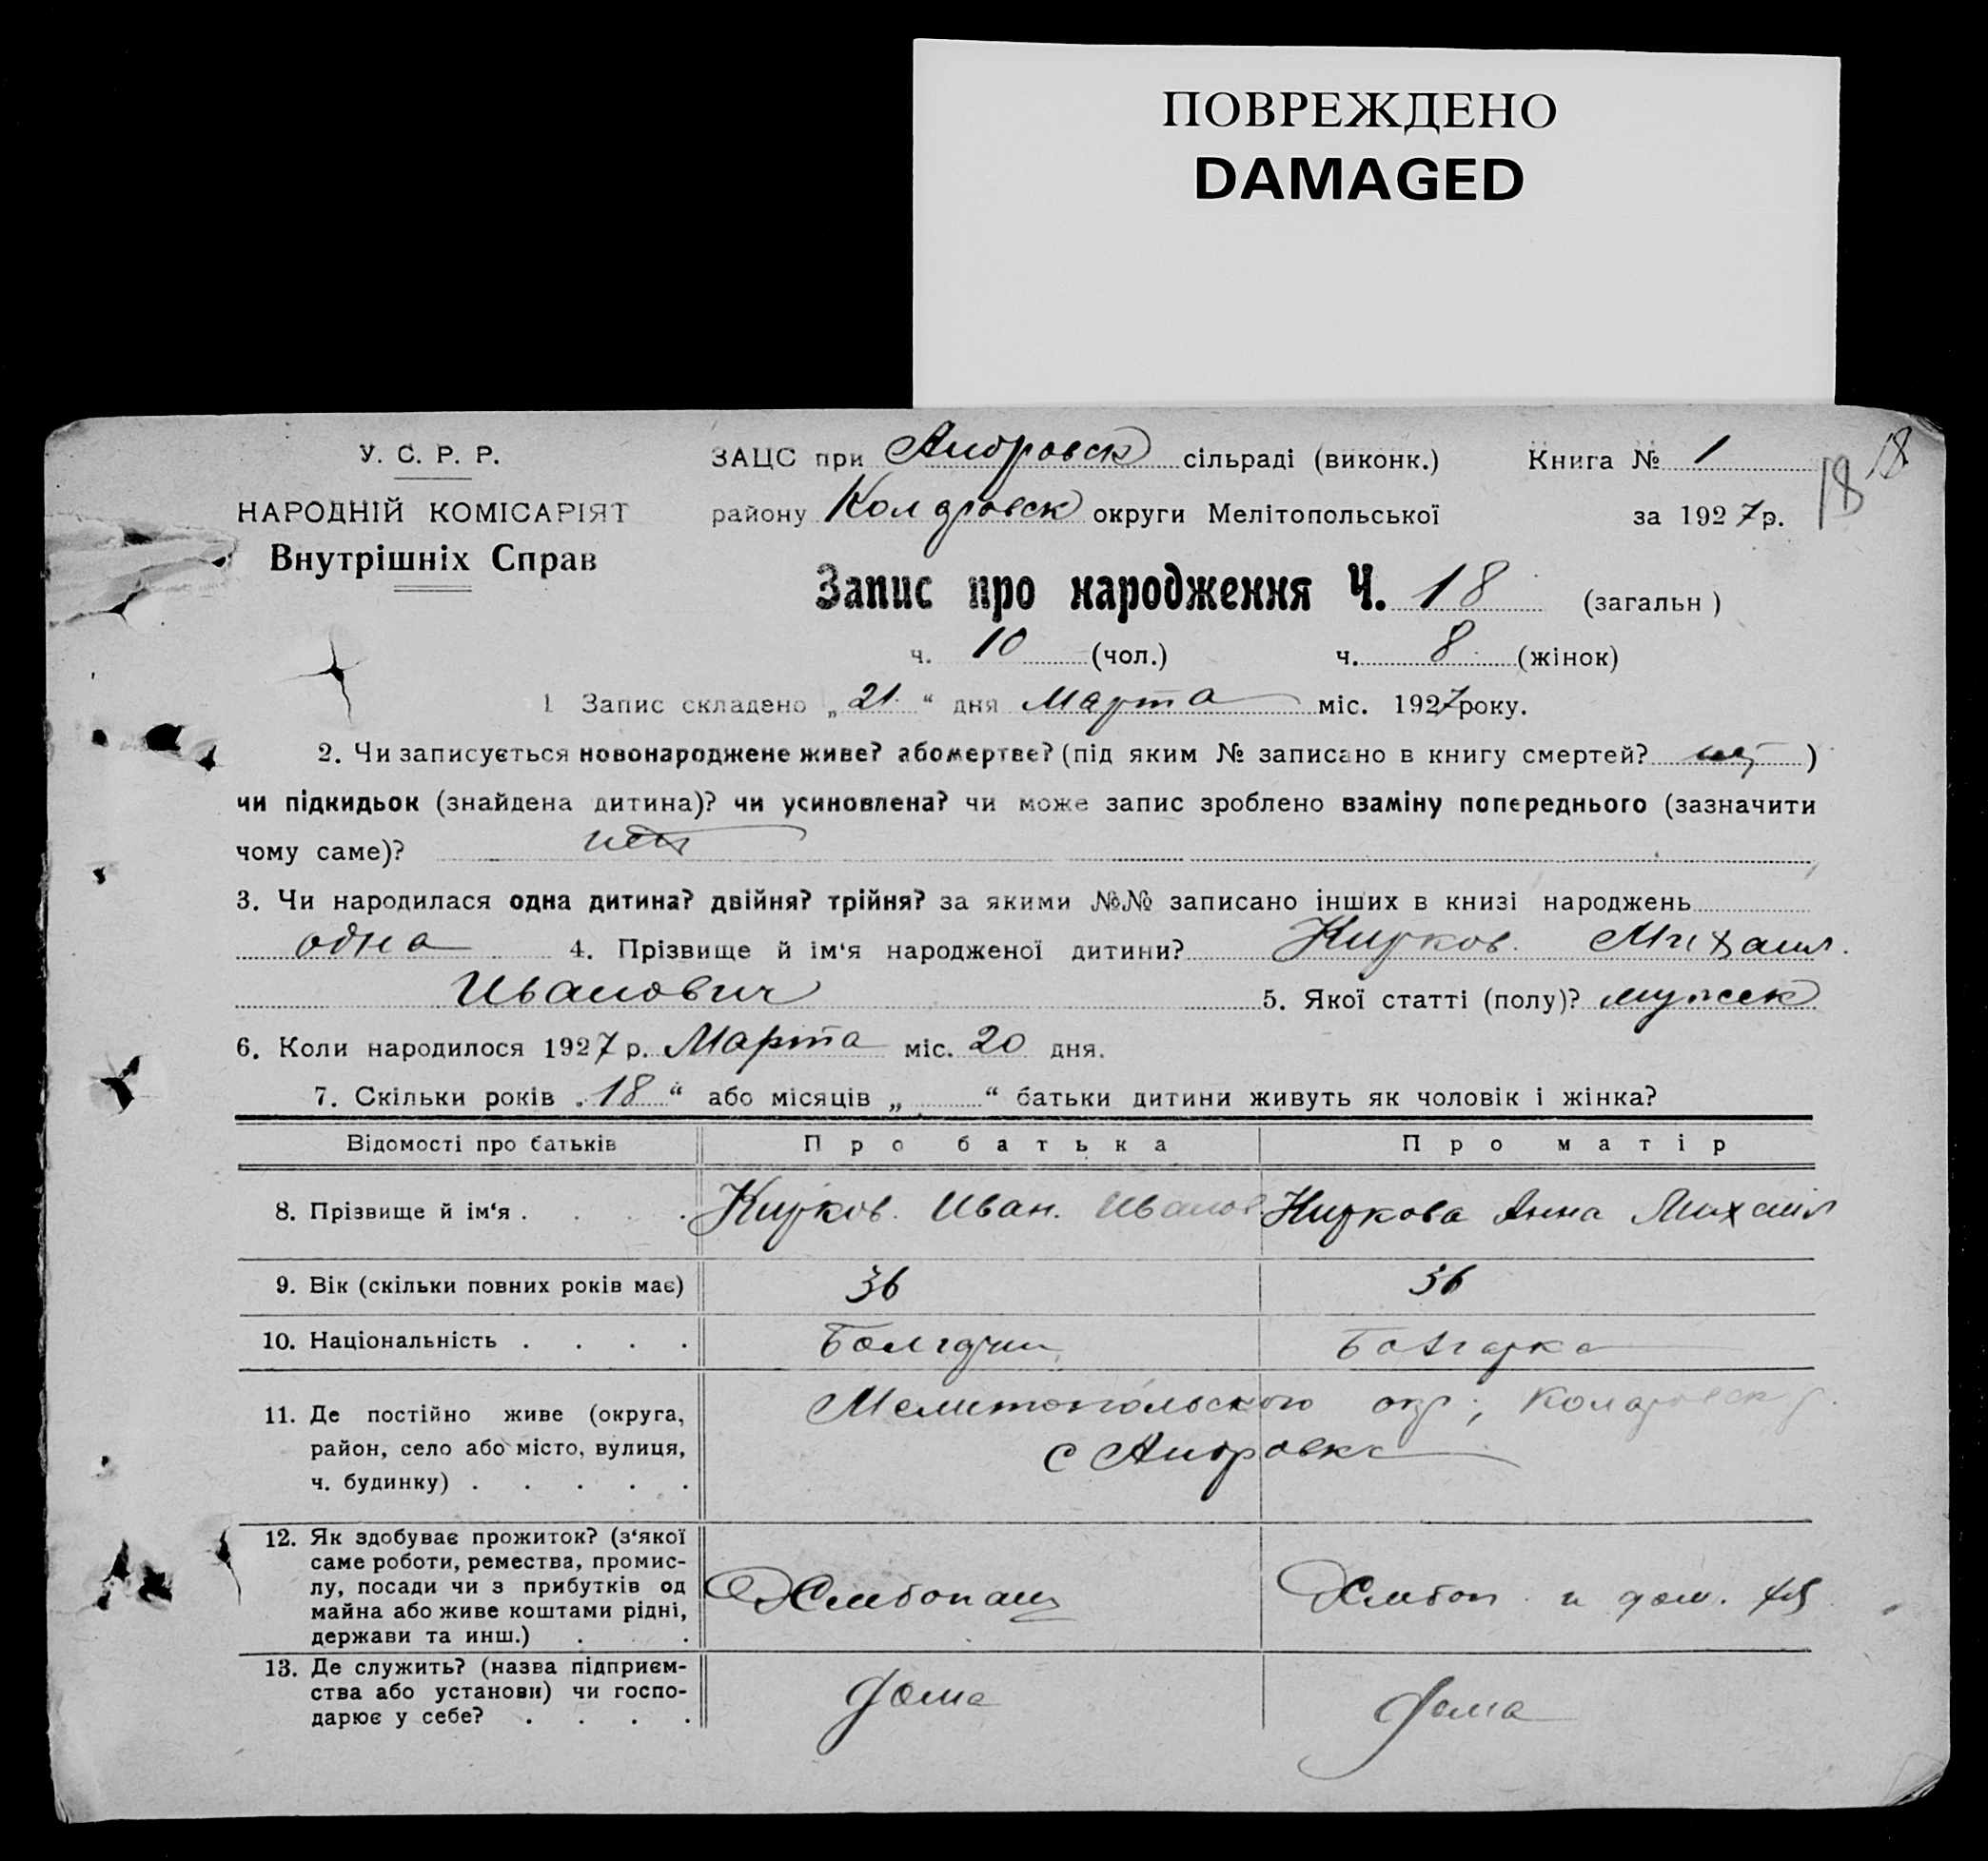 ПОВРЕЖДЕНО
DAMAGED
У. С. Р. Р.
НАРОДНІЙ КОМІСАРІЯТ
Внутрішніх Справ
ЗАЦС при сільраді (виконк.) Книга № 1
18
18
району округи Мелітопольської за 1927 р.
Запис про народження Ч. 18 (загальн )
ч. 10 (чол.) ч. 8 (жінок)
1 Запис складено „ 21 “ дня Марта міс. 1927 року.
2. Чи записується новонароджене живе? або мертве? (під яким № записано в книгу смертей? нет )
чи підкидьок (знайдена дитина)? чи усиновлена? чи може запис зроблено взаміну попереднього (зазначити
чому саме)? нет
3. Чи народилася одна дитина? двійня? трійня? за якими №№ записано інших в книзі народжень
одна 4. Прізвище й ім‘я народженої дитини? Михаил
Иванович 5. Якої статті (полу)? мужск
6. Коли народилося 1927 р. Марта міс. 20 дня.
7. Скільки років „ 18 “ або місяців „ “ батьки дитини живуть як чоловік і жінка?
Відомості про батьків Про батька Про матір
8. Прізвище й ім‘я . . . . Иван. Иванов Анна Михаил
9. Вік (скільки повних років має) 36 36
10. Національність . . . . Болгарин Болгарка
11. Де постійно живе (округа,
район, село або місто, вулиця,
ч. будинку) . . . . .
Мелитопольского окр.,
с
12. Як здобуває прожиток? (з‘якої
саме роботи, ремества, промис-
лу, посади чи з прибутків од
майна або живе коштами рідні,
держави та инш.) . .
Хлебопаш Хлебоп. и дом. хоз
13. Де служить? (назва підприєм-
ства або установи) чи госпо-
дарює у себе? . . . .
дома дома